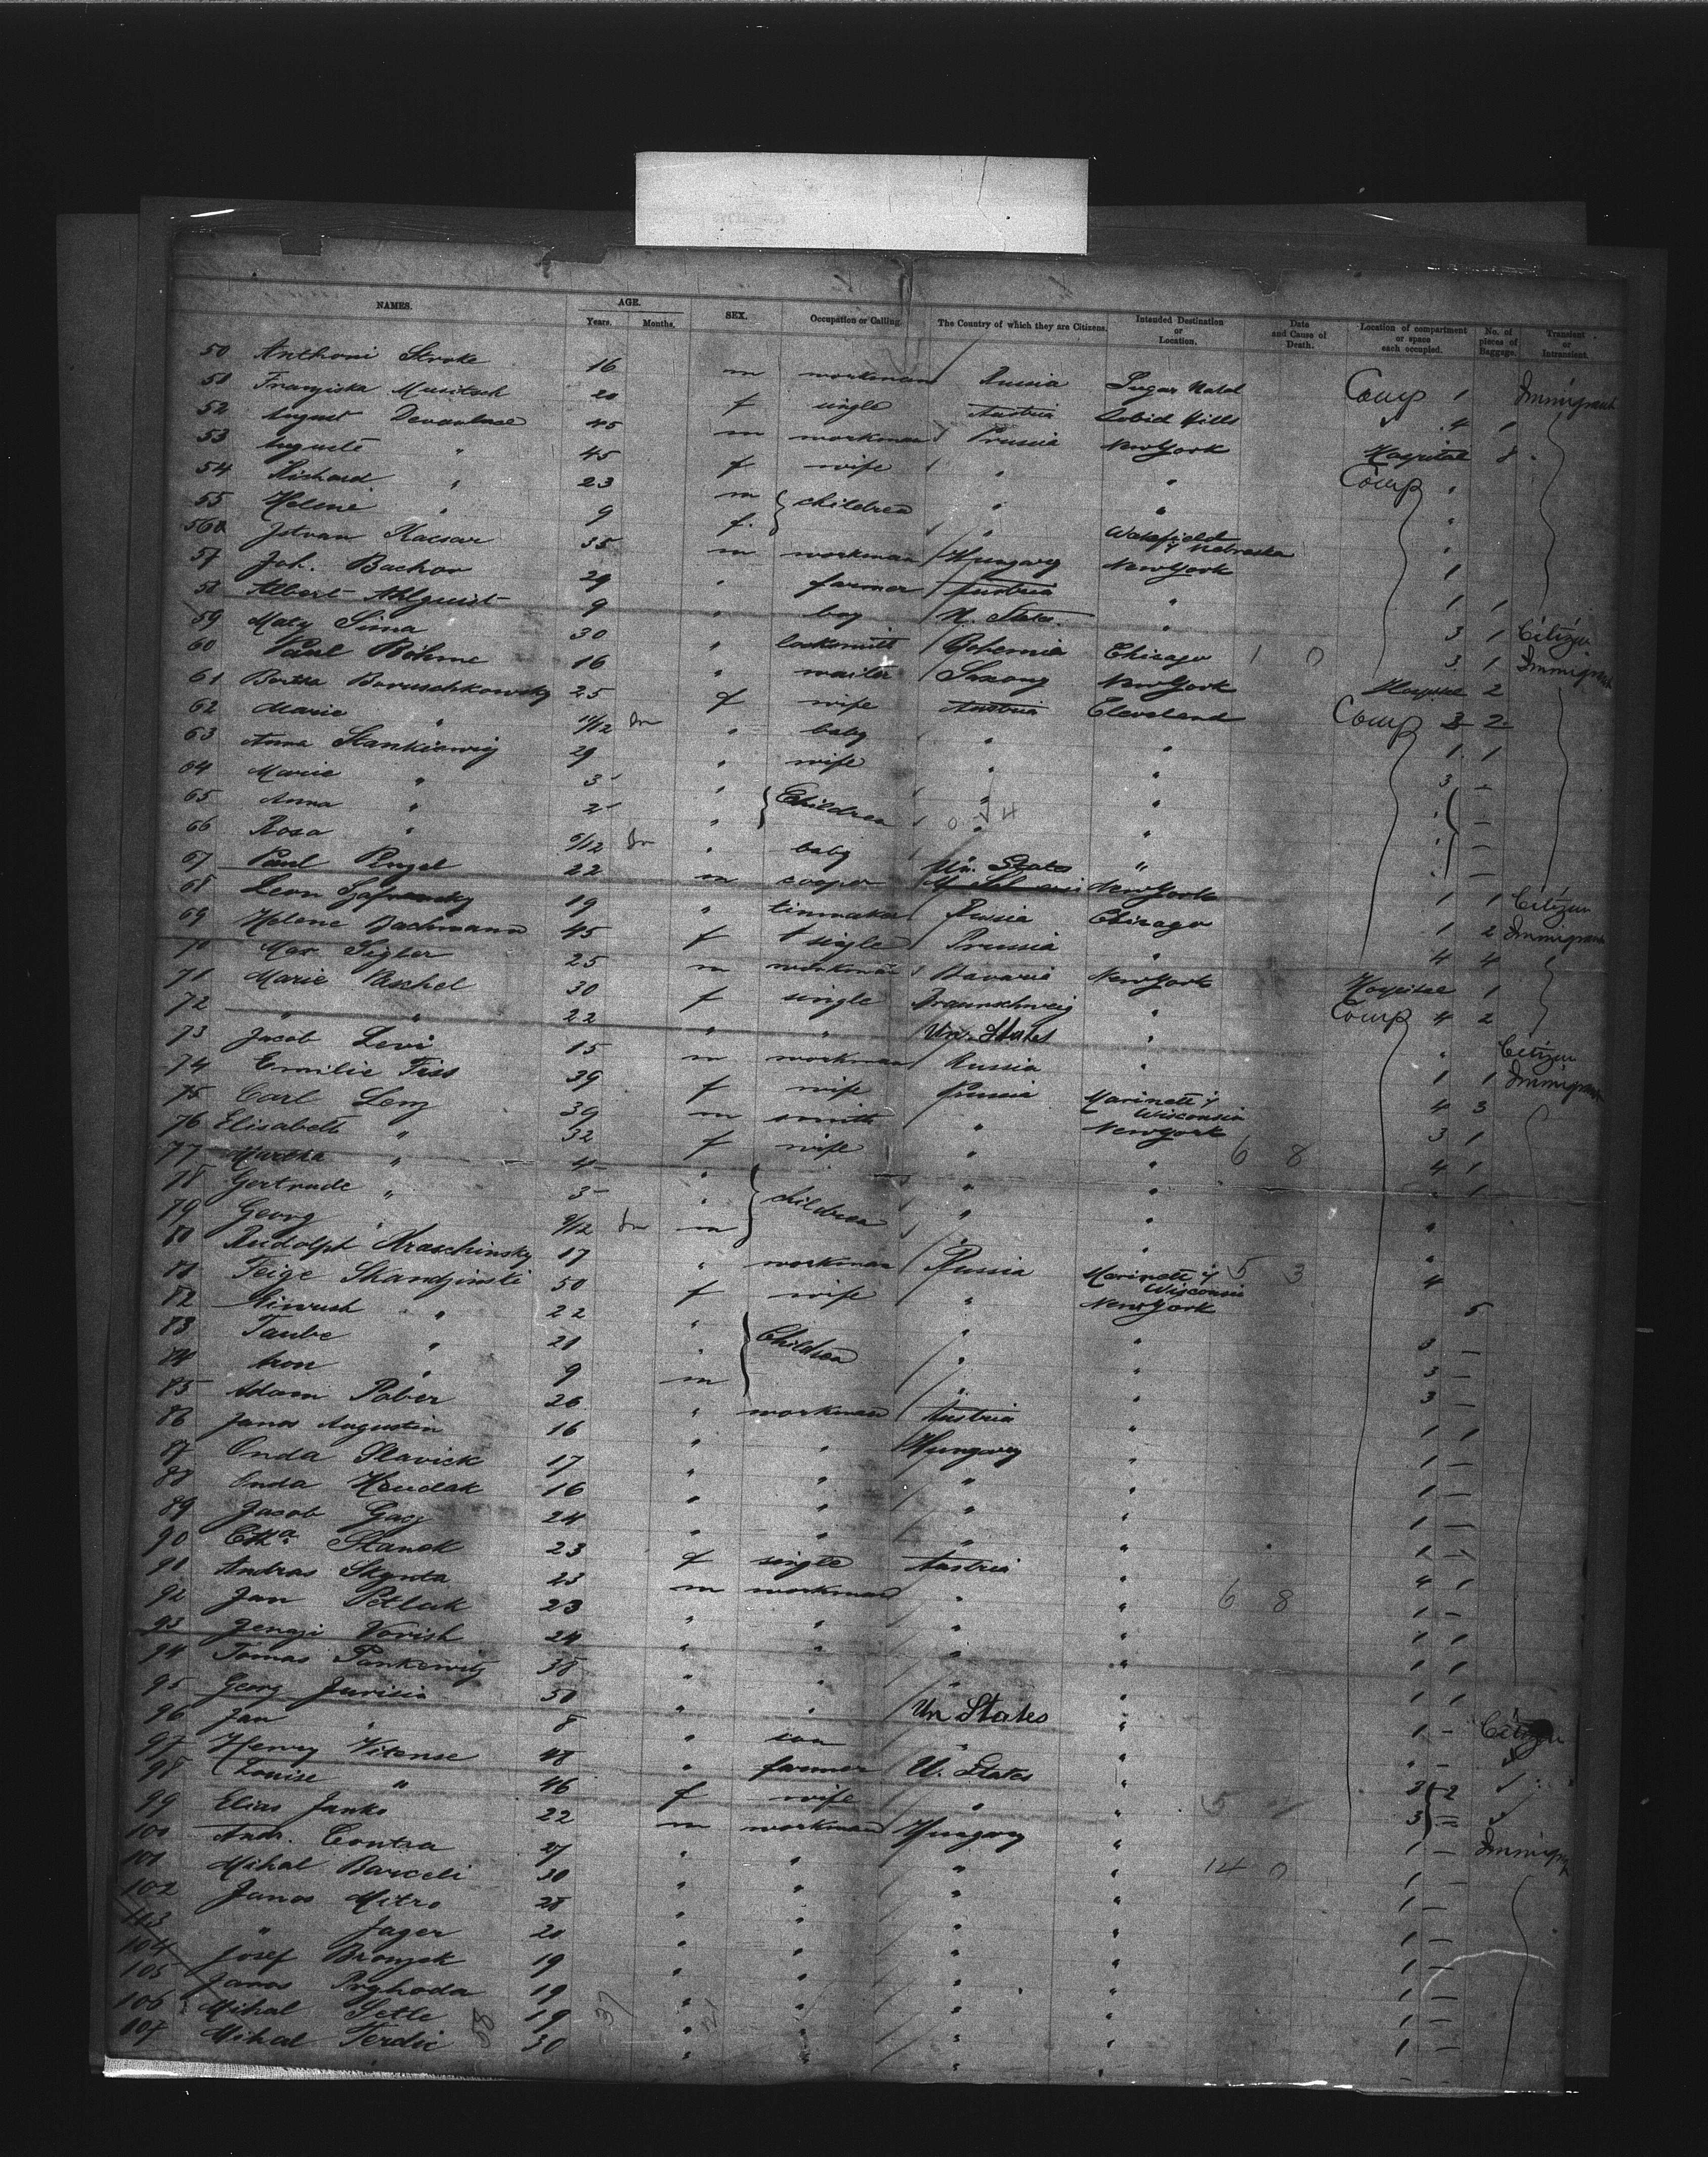 NAMES. AGE. Years. Months. SEX. Occupation or Calling. The Country of which they are Citizens. Intended Destination or Location. Date and Cause of Death. Location of compartment or space each occupied. No. of pieces of Baggage. Transient or Intransient.
50 Anthoni Stroke 16 m workman Russia Sugar Comp 1 Immigrant
51 Franziska Musitsch 20 f single Austria Hills " 4 1
52 August 45 m workman Prussia New York Hospital 8
53 Auguste " 45 f wife " " Comp "
54 Richard " 23 m children " " "
55 Helene " 9 f. " " "
56 Istvan Kacsar 35 m workman Hungary Wakefield Nebraska 1
57 Joh. Bachor 29 " farmer Austria New York 1 1
58 Albert Ahlquist 9 " boy U. States " 3 1 Citizen
59 Maty Sima 30 " locksmith Bohemia Chicago 1 0 3 1 Immigrant
60 Paul Böhme 16 " waiter Saxony New York Hospital 2
61 Bertha Boruschkowsky 25 f wife Austria Cleveland Comp 3 2
62 Marie " 11/12 " baby " " 1 1
63 Anna Stankiewig 29 " wife " " 3 —
64 Marie " 3 " Children " " " —
65 Anna " 2 " " " " —
66 Rosa " 6/12 " baby " " —
67 Paul Pingel 22 m cooper Un. States New York 1 1 Citizen
68 Leon 19 " tinmaker Russia Chicago 1 2 Immigrant
69 Helene Bachmann 45 f single Prussia " 4 4
70 Max Sigler 25 m workman Bavaria New York Hospital 1
71 Marie Paschel 30 f single Braunschweig " Comp 4 2
72 " " 22 " " Un. States " " Citizen
73 Jacob Levi 15 m workman Russia " 1 1 Immigrant
74 Emilie Fiss 39 f wife Prussia Marinette Wisconsin 4 3
75 Carl Leng 39 m smith " New York 3 1
76 Elisabeth " 32 f wife " " 6 8 4 1
77 Martha " 4 " children " " " 1
78 Gertrude " 3 " " " "
79 Georg " 9/12 m " " "
80 Rudolph Kraschinsky 17 " workman Russia Marinette Wisconsin 5 3 4
81 Feige Skandzinski 50 f wife " New York 5
82 " 22 " Children " " 3 —
83 Taube " 20 " " " 3 —
84 Aron " 9 m " " 3 —
85 Adam Pober 26 " workman Austria " 1 1
86 Janos Augustin 16 " " Hungary " 1 —
87 Onda Slavick 17 " " " " 1 —
88 Onda Hendak 16 " " " " 1 —
89 Jacob Gacz 24 " " " " 1 —
90 Stanek 23 f single Austria " 4 1
91 Andras 23 m workman " " 6 8 1 —
92 Jan Petlak 23 " " " " 1 1
93 Vorish 24 " " " " 1 1
94 Tomas Pankewitz 38 " " " " 1 1
95 Georg Jurisin 50 " " Un States " 1 — Citizen
96 Jan " 8 " son " " " —
97 Henry Vitense 48 " farmer U. States " 3 2
98 Louise " 46 f wife " " 5 3 —
99 Elias Janko 22 m workman Hungary " 1 — Immigrant
100 Andr. Contra 27 " " " " 14 0 1 —
101 Mihal Barceli 30 " " " " 1 —
102 Janos Mitro 28 " " " " 1 —
103 " Jager 20 " " " " 1 —
104 Josef 19 " " " " 1 —
105 Janos Pryhoda 19 " " " " 1 —
106 Mihal Setle 19 " " " " 1 —
107 Mihal Ferdic 30 " " " " — —
58 37